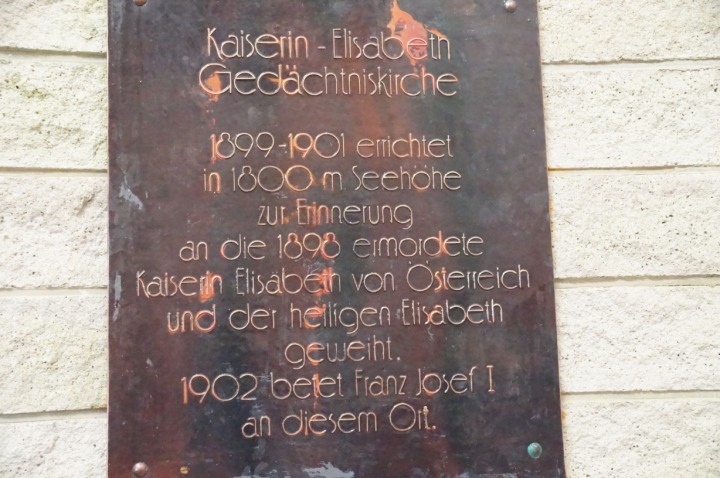 Kaiserin - Elisabeth
Gedächtniskirche
1899-1901 errichtet
in 1800 m Seehöhe
zur Erinnerung
an die 1898 ermordete
Kaiserin Elisabeth von Österreich
und der heiligen Elisabeth
geweiht.
1902 betet Franz Josef I
an diesem Ort.